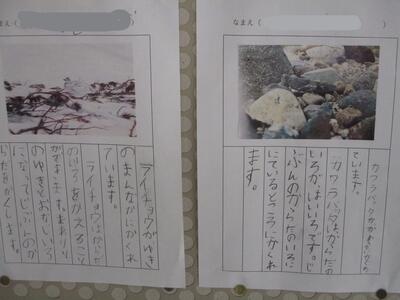 なまえ（
ライチョウがゆき
のまんなかにかくれ
ています。
ライチョウはからだ
のいろをかえること
ができます。まわり
のゆきとおなじいろ
になってじぶんのか
らだをかくします。
なまえ（
カワラバッタが
ています。
カワラバッタはからだの
いろが、はいいろです。じ
ぶんのからだのいろに
にているところにかくれ
ます。